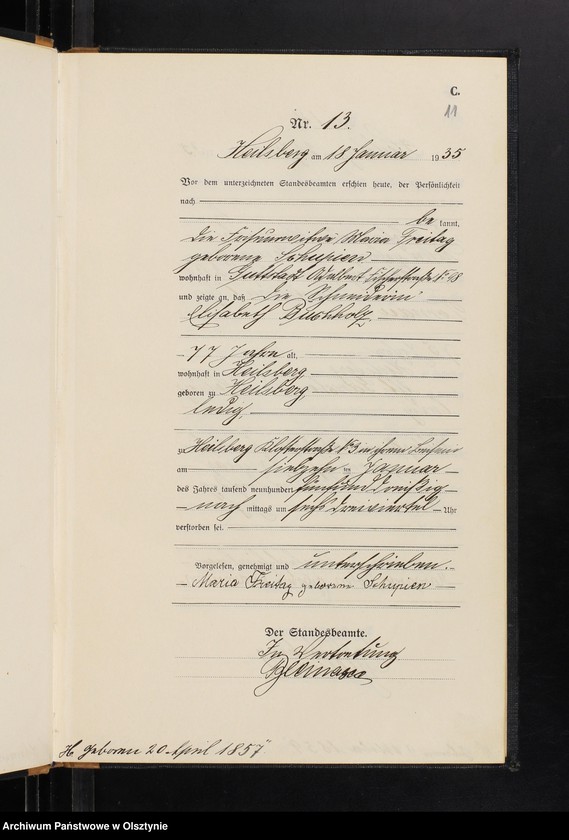 C.
11
Nr. 13.
Heilsberg am 18 Januar 1935
Vor dem unterzeichneten Standesbeamten erschien heute, der Persönlichkeit
nach
be kannt,
die Maria Freitag
geborene Schupien
wohnhaft in Guttstadt Adalbert
und zeigte an, daß die Schneiderin
Elisabeth Buchholz
77 Jahre alt,
wohnhaft in Heilsberg
geboren zu Heilsberg
ledig,
zu Heilsberg Klosterstraße in ihrem Beisein
am siebzehn ten Januar
des Jahres tausend neunhundert fünfunddreißig
nach mittags um sechs dreiviertel Uhr
verstorben sei.
Vorgelesen, genehmigt und unterschrieben.
Maria Freitag geborene Schupien
Der Standesbeamte.
In Vertretung
H. Geboren 20. April 1857
Archiwum Państwowe w Olsztynie